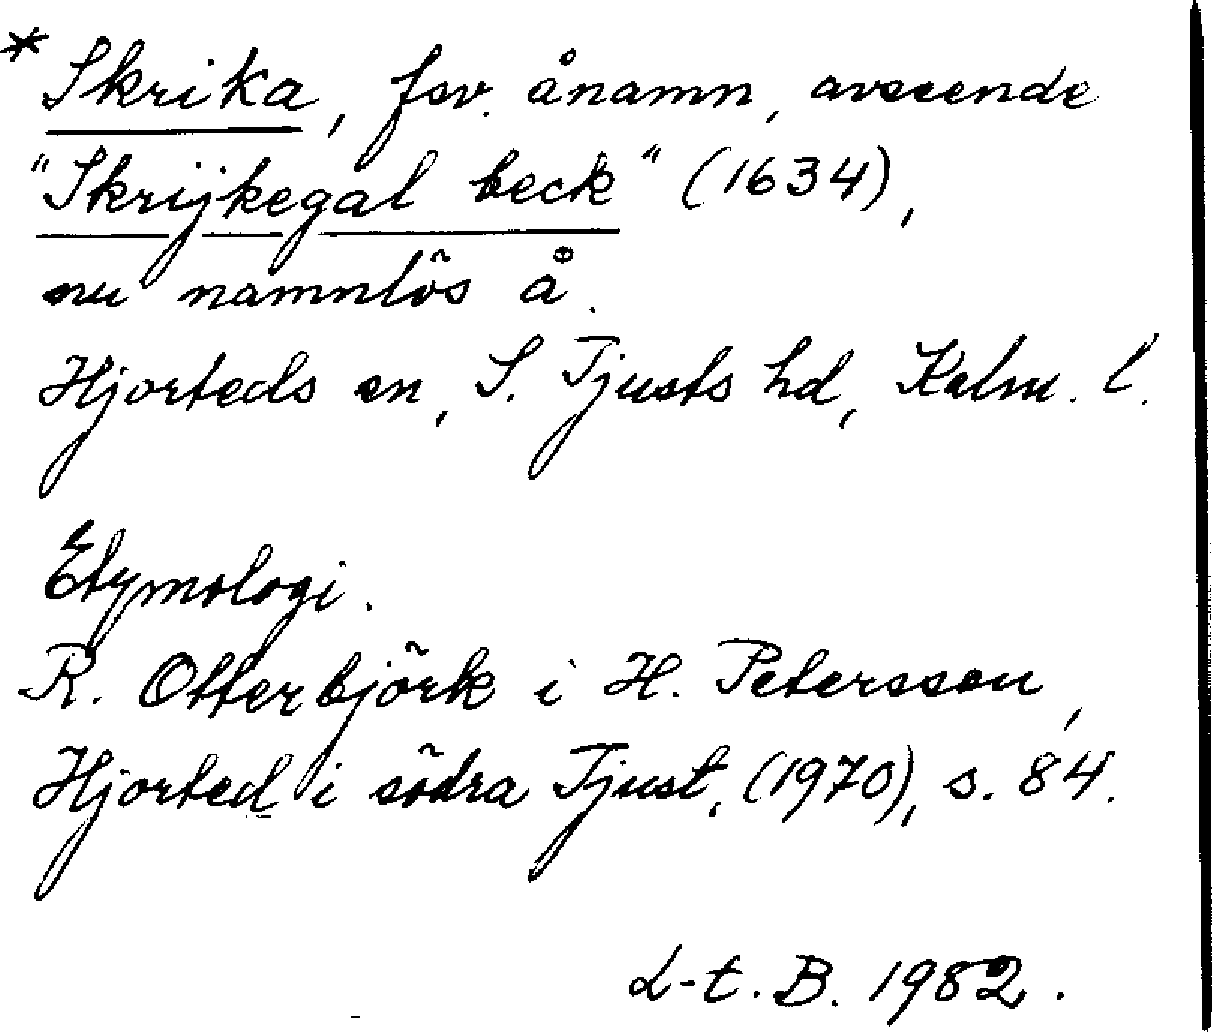 *Skrika, fsv. ånamn, avseende
"Skrijkegal beck" (1634),
nu namnlös å.
Hjorteds sn, S. Tjusts hd, Kalm. l.
Etymologi.
R. Otterbjörk i H. Petersson,
Hjorted i södra Tjust, (1970), s. 84.
L-t. B. 1982.